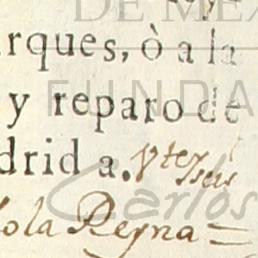 DE MÉX
arques, ò a la
FUNDA
y reparo de
adrid a. Vte y seis
Carlos
Yo la Reyna =